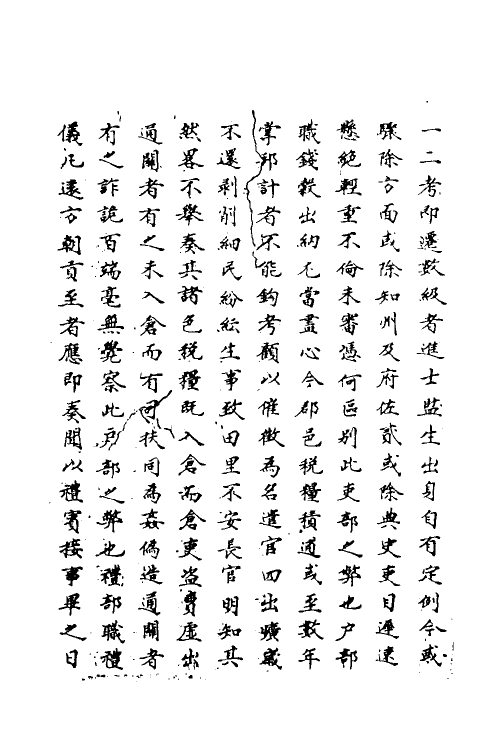 一二考即遷數級者進士監生出身自有定例今或
驟除方面或除知州及府佐貳或除典史吏目遲速
懸絕輕重不倫未審憑何區別此吏部之弊也户部
職錢糓出納尤當盡心今郡邑税糧積逋或至數年
掌邦計者不能鈎考顧以催徴為名遣官四出曠歲
不還剥削細民紛紜生事致田里不安長官明知其
然畧不舉奏其諸色税糧既入倉而倉吏盗賣虚出
通關者有之未入倉而有司扶同為姦偽造通關者
有之詐詭百端毫無覺察此户部之弊也禮部職禮
儀凡遠方朝貢至者應即奏聞以禮賓接事畢之日